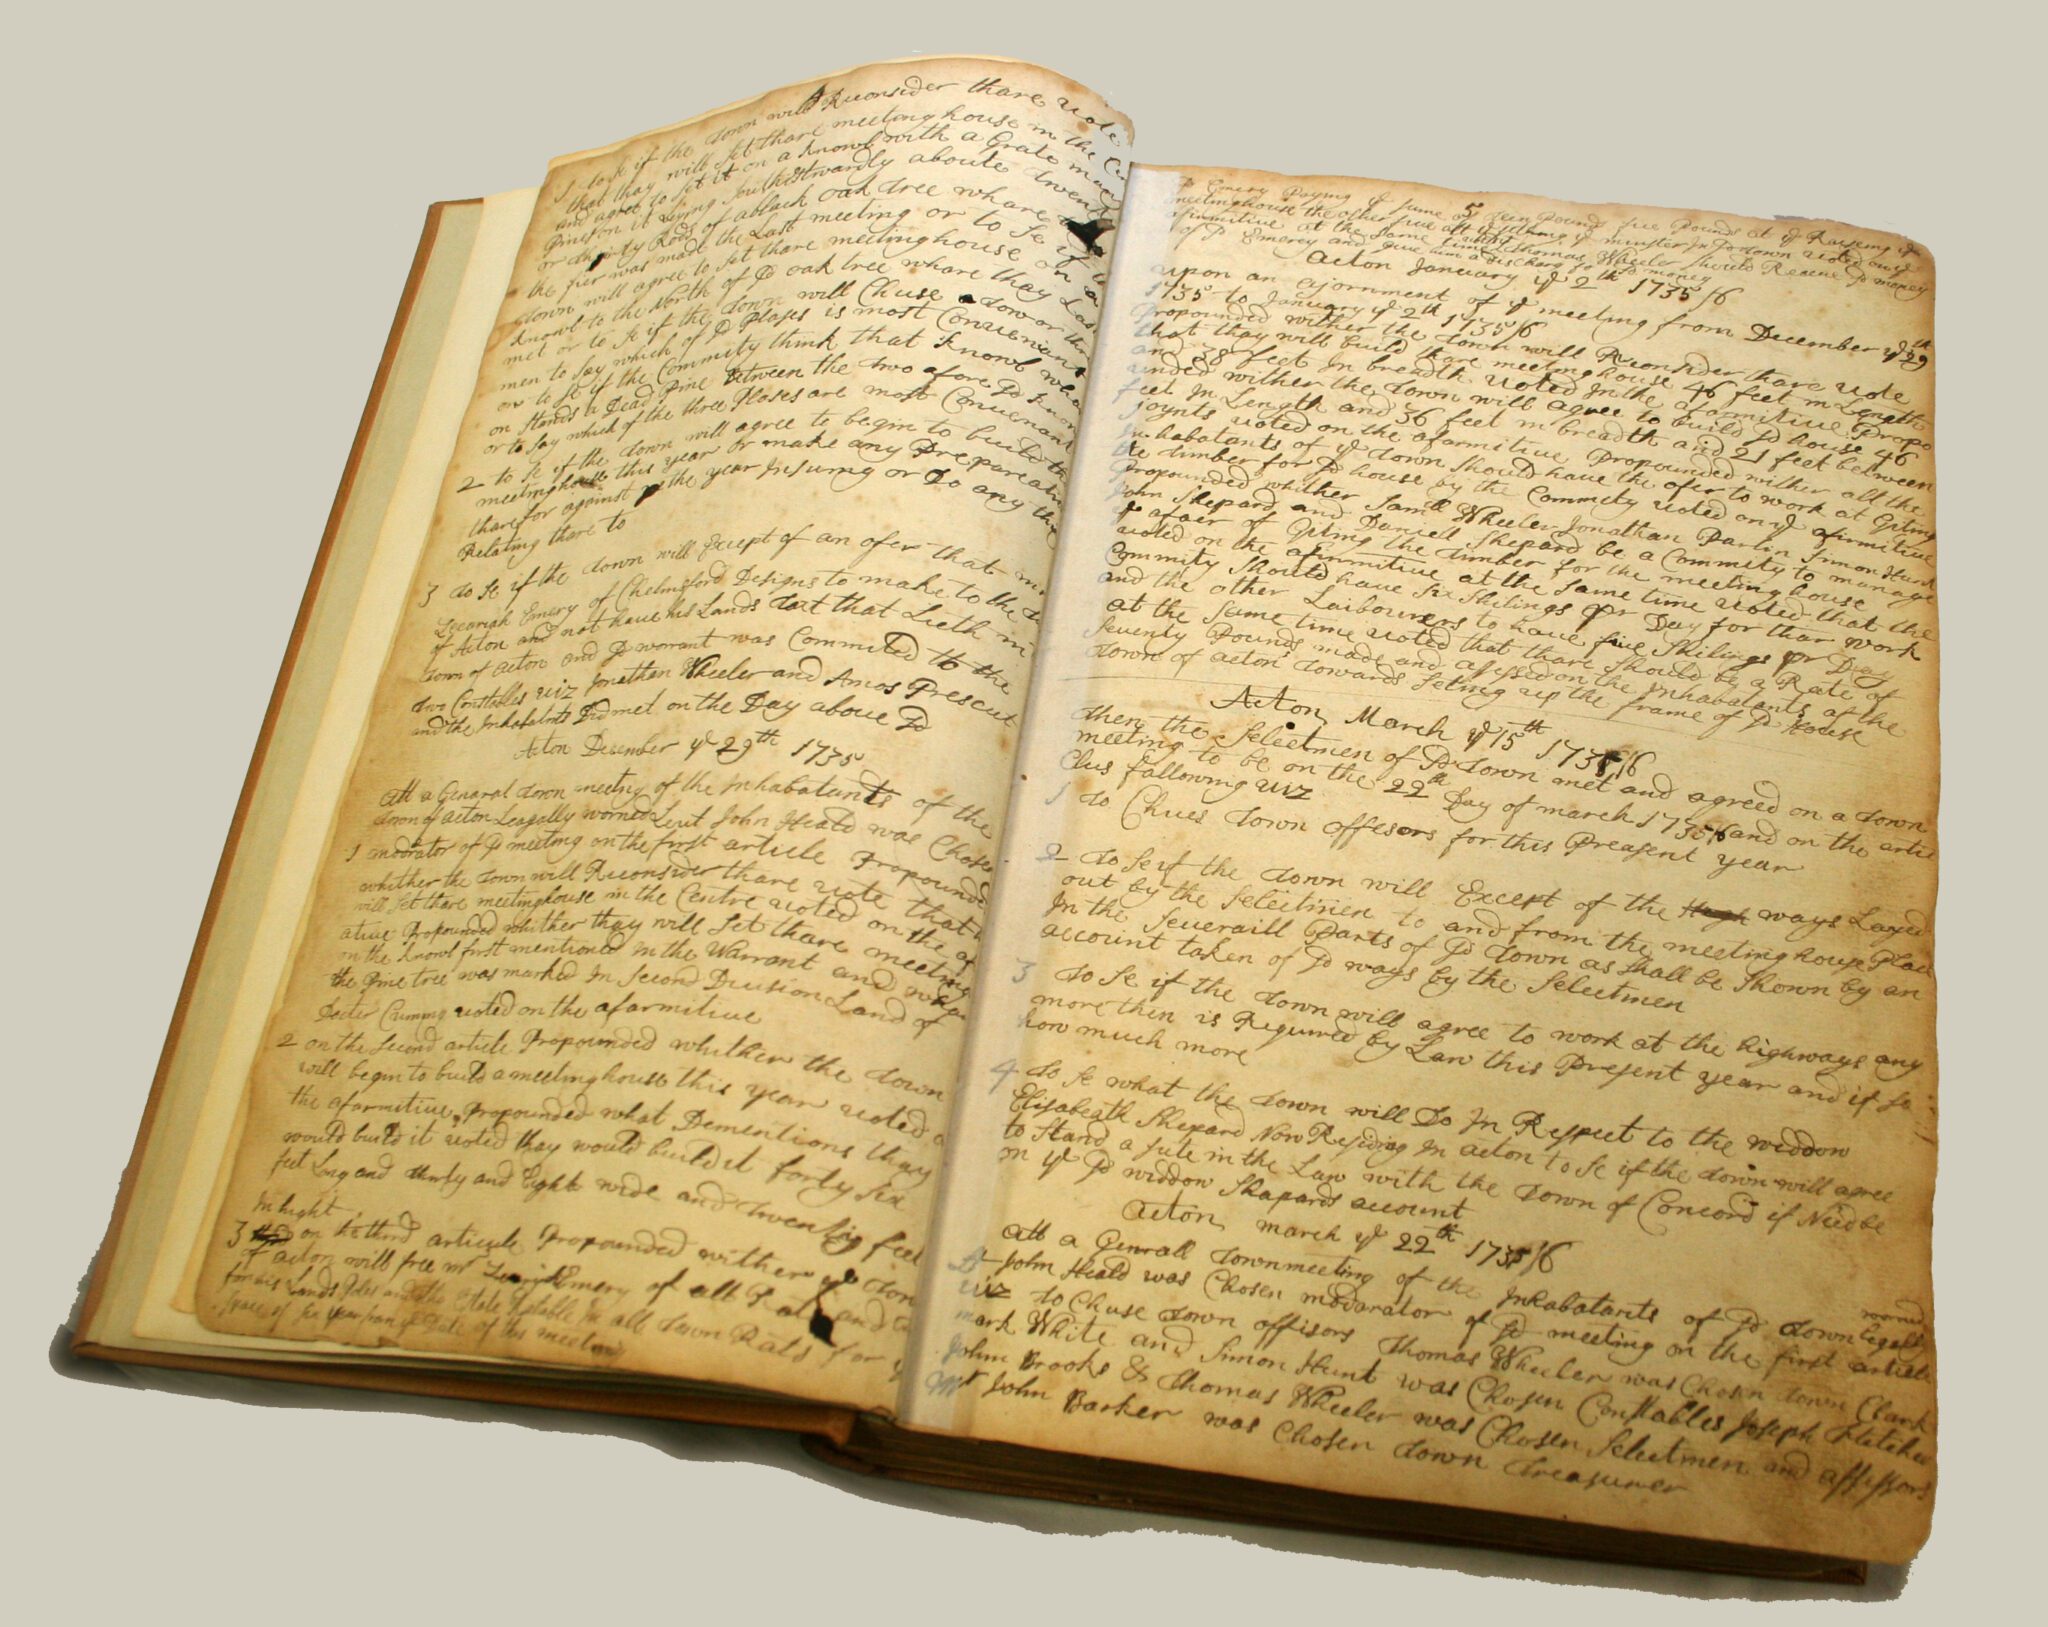 1 to se if the town will Reconsider thare vote
that thay will set thare meeting house in the
and agree to set it on a knowl with a Grate many
Pines on it Lying Southestwardly aboute twenty
or thirty Rods of a black oak tree whare
the fier was made the Last meeting or to se if the
town will agree to set thare meeting house on a
knowl to the North of sd oak tree whare thay Last
met or to se if the town will Chuse a tow or three
men to say which of sd Plases is most Convenant
or to se if the Commity think that knowl whare
on stands a Dead Pine Between the two afore sd knowl
or to say which of the three Plases are most Convenant
2 to se if the town will agree to begin to build
meetinghouse this year or make any Preparation
tharefor against the year Insuing or Do any thing
Relating thare to
3 to se if the town will Except of an ofer that mr
Zecariah Emery of Chelmsford Designs to make to the
of Acton and not have his Lands taxt that Lieth in
town of acton and sd worrant was Commited to the
two Constables viz Jonathan Wheeler and Amos Prescut
and the Inhabatnts Did met on the Day above sd
Acton December ye 29th 1735
Att a Genaral town meeting of the Inhabatants of the
town of acton Leagally worned Leut John Heald was Chosen
1 modrator of sd meeting on the first article Propounded
whither the town will Reconsider thare vote that
will set thare meetinghouse in the Centre voted on the af
ative Propounded whither thay will set thare meeting
on the knowl first mentioned in the Warrant and whare
the Pine tree was marked In Second Division Land of
Docter Cuming voted on the afarmitive
2 on the second article Propounded whither the town
will begin to build a meetinghouse this year voted
the afarmitive Propounded what Dementions thay
would build it voted thay would build it forty six
feet Long and thirty and Eight wide and twenty feet
In hight
3 on the third article Propounded wither ye town
of acton will free mr Emery of all Rats and
for his Lands
space of six year from ye Date of this meeting
sd Emery Paying ye sume of teen Pound five Pounds at ye Raiseing ye
meetinghouse the other five att ye minister In sd town voted on ye
afirmitive at the same time voted Thomas Wheeler should Receve sd money
of sd Emery and give him a Discharg for sd money
Acton January ye 2th 1735/6
upon an ajornment of ye meeting from December ye 29th
1735 to January ye 2th 1735/6
Propounded wither the town will Reconsider thare vote
that thay will build thare meeting house 46 feet in Length
and 38 feet In breadth voted In the afarmitive Propo
unded wither the town will agree to build sd house 46
feet In Length and 36 feet in breadth and 21 feet between
Joynts voted on the afarmitive Propounded wither all the
Inhabatants of ye town should have the ofer to work at Giting
the timber for sd house by the Commety voted on ye afirmitive
Propounded whither Samll Wheeler Jonathan Parlin Simon Hunt
John Shepard and Daniell Shepard be a Commity to manage
ye afaer of Giting the timber for the meeting house
voted on the afirmitive at the same time voted that the
Commity should have six shilings pr Day for thar work
and the other Laibourers to have five shilings pr Day
at the same time voted that thare should be a Rate of
Seventy Pounds made and assessed on the Inhabatants of the
town of acton towards seting up the frame of sd House
Acton March ye 15th 1735/6
then the Selectmen of sd town met and agreed on a town
meeting to be on the 22th Day of march 1735/6 and on the arti
Clus fallowing viz
1 to Chues town offesors for this Preasent year
2 to se if the town will Except of the ways Layed
out by the Selectmen to and from the meeting house Place
In the severaill Parts of sd town as shall be shown by an
account taken of sd ways by the Selectmen
3 to se if the town will agree to work at the highways any
more then is Requured by Law this Present year and if so
how much more
4 to se what the town will Do In Respect to the widdow
Elisabeath Shepard Now Residing In acton to se if the town will agree
to stand a sute in the Law with the town of Concord if Need be
on ye sd widdow Shapards account
Acton march ye 22th 1735/6
att a Genrall town meeting of the Inhabatants of sd town worned Legally
Lt John Heald was Chosen modarator of sd meeting on the first article
viz to Chuse town offisors Thomas Wheeler was Chosen town Clark
mark White and Simon Hunt was Chosen Constables Joseph Fletcher
John Brooks & Thomas Wheeler was Chosen Selectmen and assessors
Mr John Barker was Chosen town treasurer